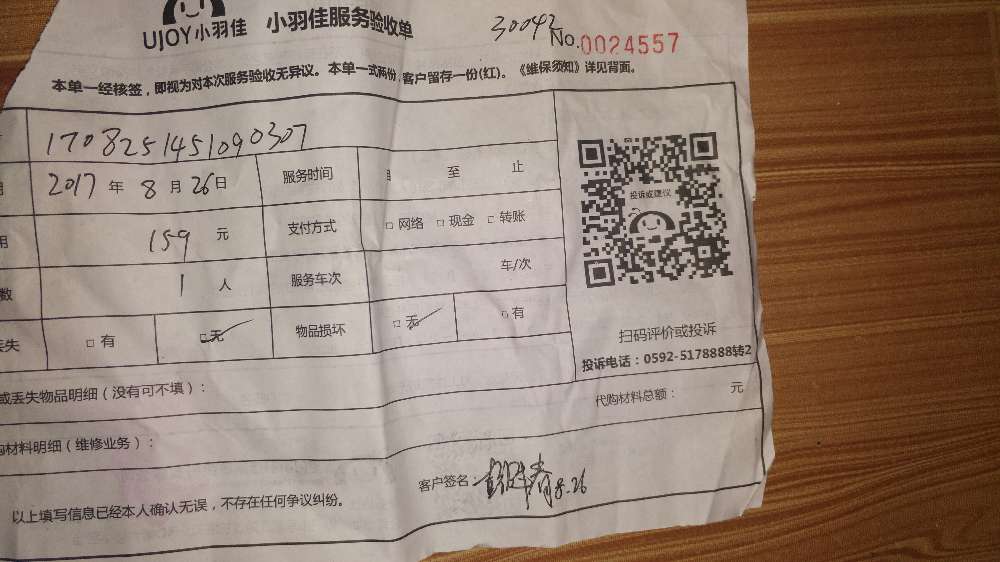 UJOY小羽佳 小羽佳服务验收单 30042 No.0024557
本单一经核签，即视为对本次服务验收无异议。本单一式两份，客户留存一份(红)。《维保须知》详见背面。
1708251451090307
2017 年 8 月 26 日 服务时间 至 止
投诉或建议
用 159 元 支付方式 □ 网络 □ 现金 □ 转账
数 1 人 服务车次 车/次
丢失 □ 有 □ 无 物品损坏 □ 无 □ 有
扫码评价或投诉
投诉电话：0592-5178888转2
或丢失物品明细（没有可不填）：
代购材料总额： 元
购材料明细（维修业务）：
客户签名： 8.26
以上填写信息已经本人确认无误，不存在任何争议纠纷。